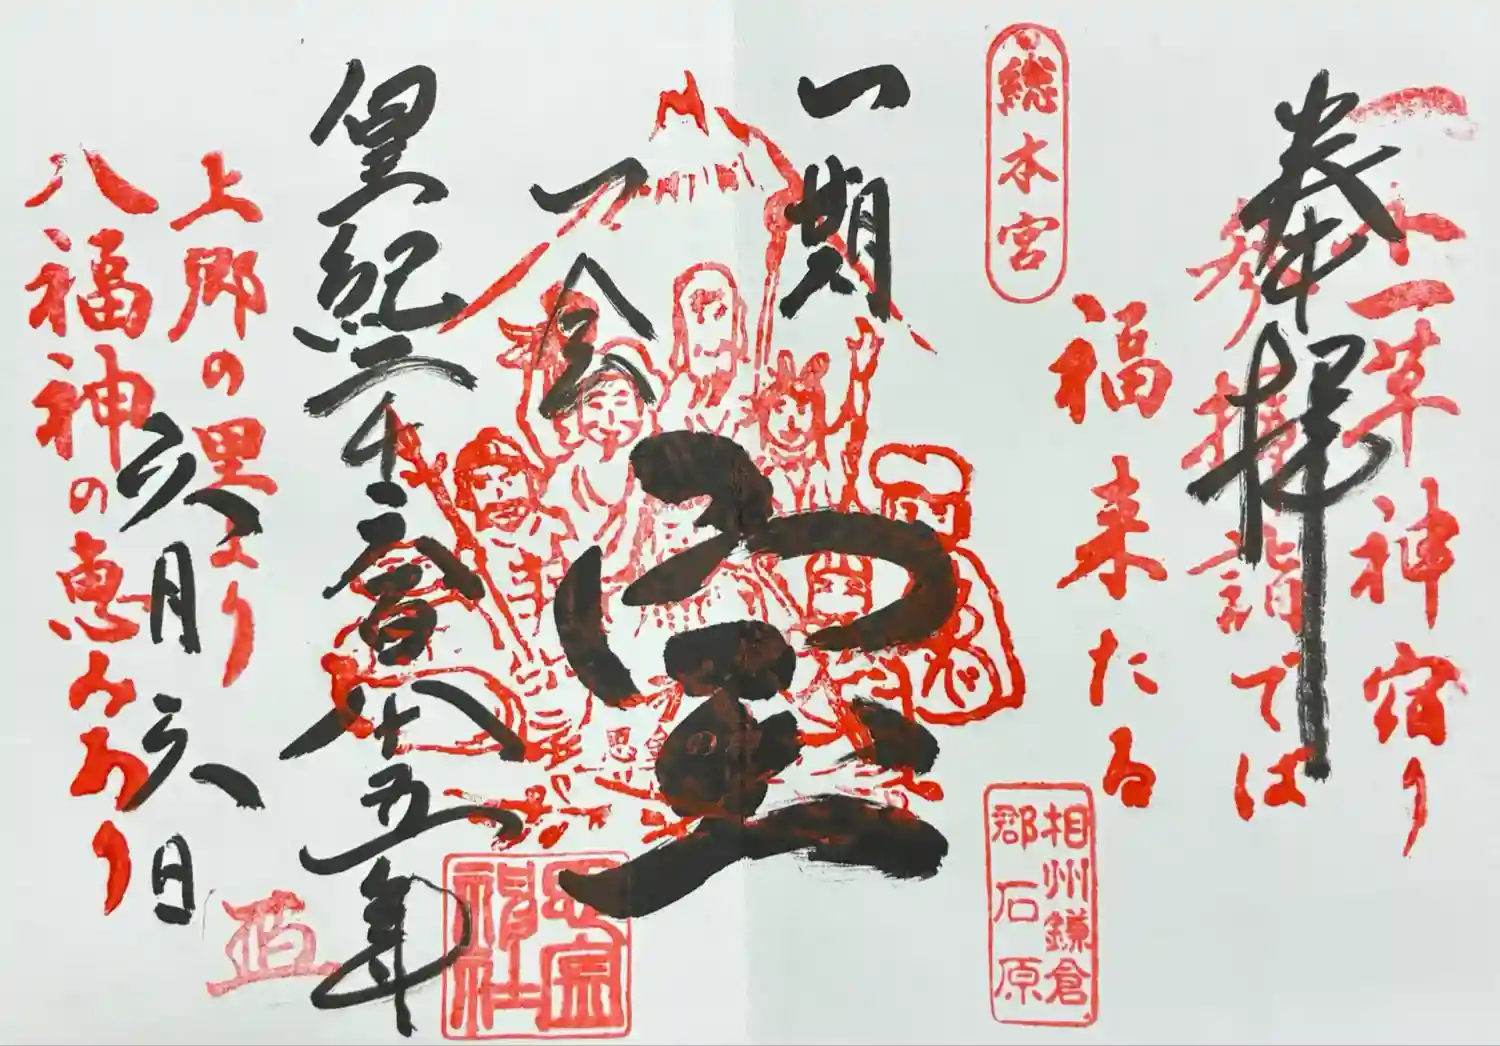 奉拝
一木一草神宿り
参拝詣では
福来たる
総本宮
相州鎌倉
郡石原
一期
一会
宝
皇紀二千六百八十五年
六月六日
上郷の里より
八福神の恵みあり